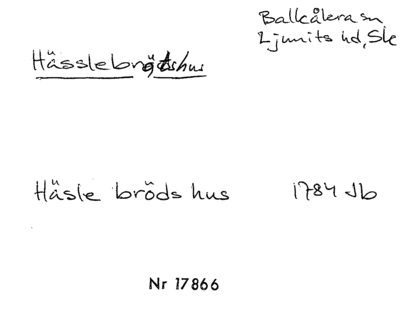 Balkåkra sn,
Ljunits hd, Sk
Hässlebrödshus
Häsle bröds hus 1784 Jb
Nr 17866